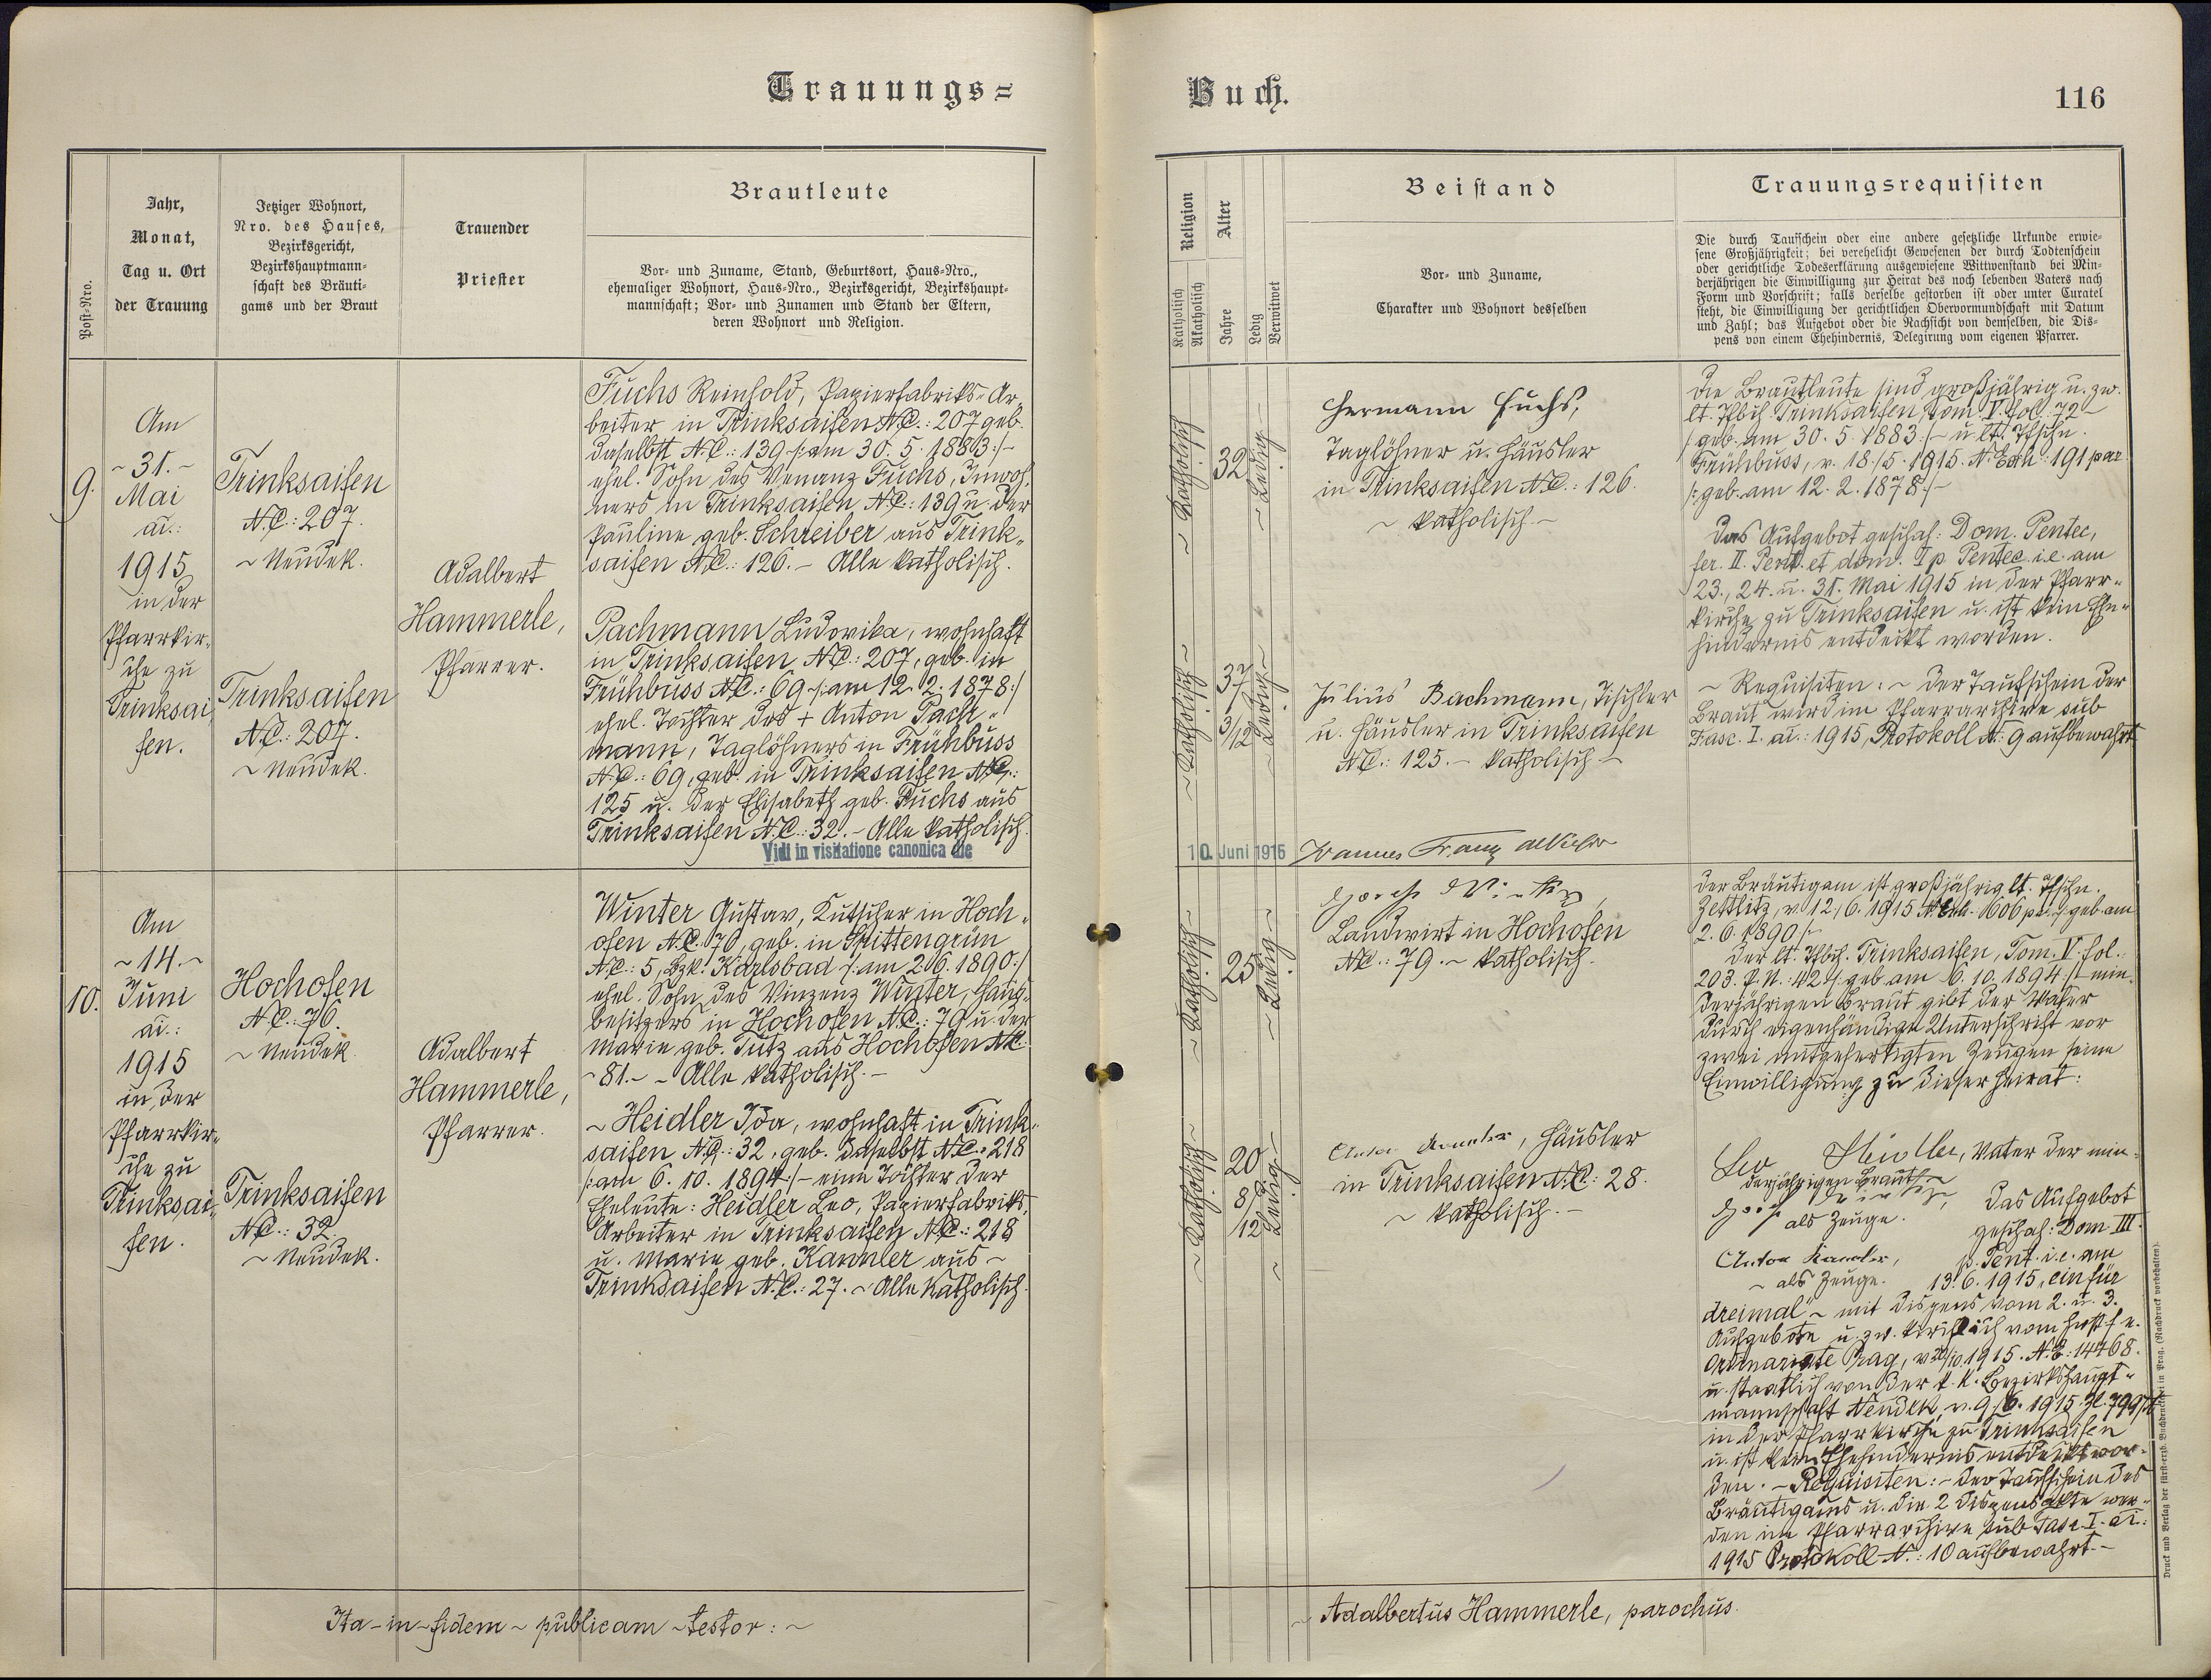 Trauungs=
Buch.
116
Post-Nro.
Jahr,
Monat,
Tag u. Ort
der Trauung
Jetziger Wohnort,
Nro. des Hauses,
Bezirksgericht,
Bezirkshauptmann=
schaft des Bräuti=
gams und der Braut
Trauender
Priester
Brautleute
Vor- und Zuname, Stand, Geburtsort, Haus-Nro.,
ehemaliger Wohnort, Haus-Nro., Bezirksgericht, Bezirkshaupt=
mannschaft; Vor- und Zunamen und Stand der Eltern,
deren Wohnort und Religion.
Religion
Katholisch
Akatholisch
Alter
Jahre
Ledig
Verwitwet
Beistand
Vor- und Zuname,
Charakter und Wohnort desselben
Trauungsrequisiten
Die durch Taufschein oder eine andere gesetzliche Urkunde erwie=
sene Großjährigkeit; bei verehelicht Gewesenen der durch Todtenschein
oder gerichtliche Todeserklärung ausgewiesene Wittwenstand bei Min=
derjährigen die Einwilligung zur Heirat des noch lebenden Vaters nach
Form und Vorschrift; falls derselbe gestorben ist oder unter Curatel
steht, die Einwilligung der gerichtlichen Obervormundschaft mit Datum
und Zahl; das Aufgebot oder die Nachsicht von demselben, die Dis=
pens von einem Ehehindernis, Delegirung vom eigenen Pfarrer.
9.
Am
~ 31. ~
Mai
ai.:
1915
in der
Pfarrkir-
che zu
Trinksai-
fen.
Trinksaifen
N.C.: 207.
~ Neudek.
Trinksaifen
N.C.: 207.
~ Neudek.
Adalbert
Hammerle,
Pfarrer.
Fuchs Reinhold, Papierfabriks-Ar-
beiter in Trinksaifen N.C.: 207 geb.
daselbst N.C.: 139 /: am 30. 5. 1883 :/-
ehel. Sohn des Venanz Fuchs, Inwoh-
ners in Trinksaifen N.C.: 139 u. der
Pauline geb. Schreiber aus Trink-
saifen N.C.: 126. – Alle katholisch.
Pachmann Ludovika, wohnhaft
in Trinksaifen N.C.: 207, geb. in
Frühbuss N.C.: 69 /: am 12. 2. 1878 :/
ehel. Tochter des + Anton Pach-
mann, Taglöhners in Frühbuss
N.C.: 69, geb. in Trinksaifen N.C.:
125 u. der Elisabeth geb. Fuchs aus
Trinksaifen N.C.: 32. – Alle katholisch.
Vidi in visitatione canonica die
~ Katholisch ~
32
~ Ledig ~
~ Katholisch ~
37
3/12
~ Ledig ~
Hermann Fuchs,
Taglöhner u. Häusler
in Trinksaifen N.C.: 126.
~ katholisch. ~
Julius Bachmann, Tischler
u. Häusler in Trinksaifen
N.C.: 125. – katholisch –
10. Juni 1915
Die Brautleute sind großjährig u. zw.
lt. Tfbch. Trinksaifen, Tom. V. fol. 72 –
/: geb. am 30. 5. 1883 :/ – u. lt. Tfschn.
Frühbuss, v. 18./5. 1915. N. Exh.: 191 par.
/: geb. am 12. 2. 1878 :/ –
Das Aufgebot geschah: Dom. Pentec,
fer. II. Pent. et dom. I p. Pentec. i.e. am
23., 24. u. 31. Mai 1915 in der Pfarr-
kirche zu Trinksaifen u. ist kein Ehe-
hindernis entdeckt worden.
~ Requisiten: ~ Der Taufschein der
Braut wird im Pfarrarchive sub
Fasc. I. ai.: 1915, Protokoll N.: 9 aufbewahrt
10.
Am
~ 14. ~
Juni
ai.:
1915
in der
Pfarrkir-
che zu
Trinksai-
fen.
Hochofen
N.C.: 76.
~ Neudek
Trinksaifen
N.C.: 32.
~ Neudek.
Adalbert
Hammerle,
Pfarrer.
Winter Gustav, Kutscher in Hoch-
ofen N.C. 76, geb. in Spittengrün
N.C.: 5, Bzk. Karlsbad /: am 2. 6. 1890 :/
ehel. Sohn des Vinzenz Winter, Haus-
besitzers in Hochofen N.C.: 79 u. der
Marie geb. Tutz aus Hochofen N.C.
~ 81. ~ – Alle katholisch. –
~ Heidler Ida, wohnhaft in Trink-
saifen N.C.: 32, geb. daselbst N.C.: 218
/: am 6. 10. 1894 :/ – eine Tochter der
Eheleute: Heidler Leo, Papierfabriks-
Arbeiter in Trinksaifen N.C.: 218
u. Marie geb. Kannler aus ~
Trinksaifen N.C.: 27. ~ Alle katholisch.
~ Katholisch ~
25
~ Ledig ~
~ Katholisch ~
20
8/12
~ Ledig ~
Landwirt in Hochofen
N.C.: 79. ~ katholisch.
Anton Kannler, Häusler
in Trinksaifen N.C.: 28.
~ katholisch. –
Der Bräutigam ist großjährig lt. Tfschn.
Zettlitz, v. 12./6. 1915 N. Exh. 1606 /: geb. am
2. 6. 1890 :/
Der lt. Tfbch. Trinksaifen, Tom. V. fol.
203. P.N.: 102 /: geb. am 6. 10. 1894 :/ min-
derjährigen Braut gibt der Vater
durch eigenhändige Unterschrift vor
zwei mitgefertigten Zeugen seine
Einwilligung zu dieser Heirat:
Leo Heidler, Vater der min-
derjährigen Braut.
als Zeuge.
Anton Kannler,
~ als Zeuge.
Das Aufgebot
geschah: Dom III.
p. Pent. i.e. am
13. 6. 1915, ein für
dreimal ~ mit Dispens vom 2. u. 3.
Aufgebote u. zw. kirchlich vom hochf. e.
Ordinariate Prag, 1915. N.E.: 14468.
u. staatlich von der k. k. Bezirkshaupt-
mannschaft Neudek, v. 9./6. 1915. Zl.
in der Pfarrkirche zu Trinksaifen
u. ist kein Ehehindernis entdeckt wor-
den. – Requisiten: – Der Taufschein des
Bräutigams u. die 2 Dispensakte wer-
den im Pfarrarchive sub Fasc. I. ai.:
1915 Protokoll N.: 10 aufbewahrt. –
Druck und Verlag der fürst-erzb. Buchdruckerei in Prag. (Nachdruck vorbehalten).
Ita – in – fidem ~ publicam ~ testor: ~
~ Adalbertus Hammerle, parochus.